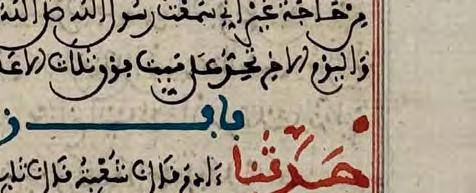 من حاجة غير اني سمعت رسول الله صلى الله
واليوم الاخر تحد على ميت فوق ثلاث الا
باب
حدثنا ءادم قال شعبة قال